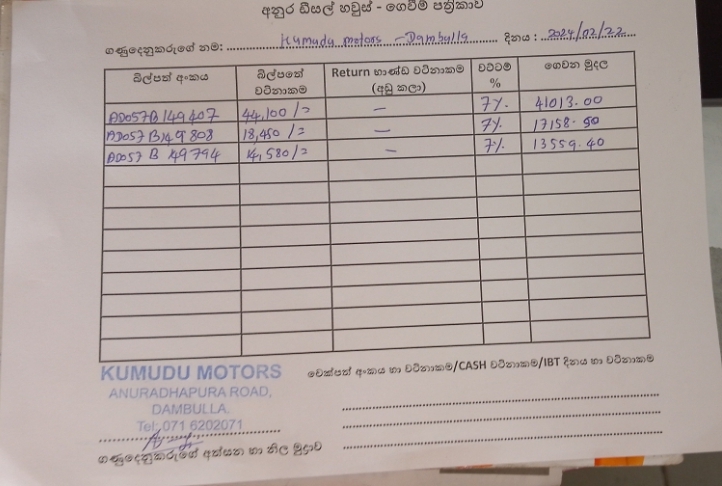 අනුර ඩීසල් හවුස් - ගෙවීම් පත්‍රිකාව
ගණුදෙනුකරුගේ නම: Kumudu motors - Dambulla දිනය : 2024/02/22
බිල්පත් අංකය බිල්පතේ වටිනාකම Return භාණ්ඩ වටිනාකම (අඩු කලා) වට්ටම් % ගෙවන මුදල
AD057B149407 44,100/= — 7% 41013.00
AD057B149808 18,450/= — 7% 17158.50
AD057B149794 14,580/= — 7% 13559.40
KUMUDU MOTORS
ANURADHAPURA ROAD,
DAMBULLA.
Tel: 071 6202071
චෙක්පත් අංකය හා වටිනාකම/CASH වටිනාකම/IBT දිනය හා වටිනාකම
ගණුදෙනුකරුගේ අත්සන හා නිල මුද්‍රාව